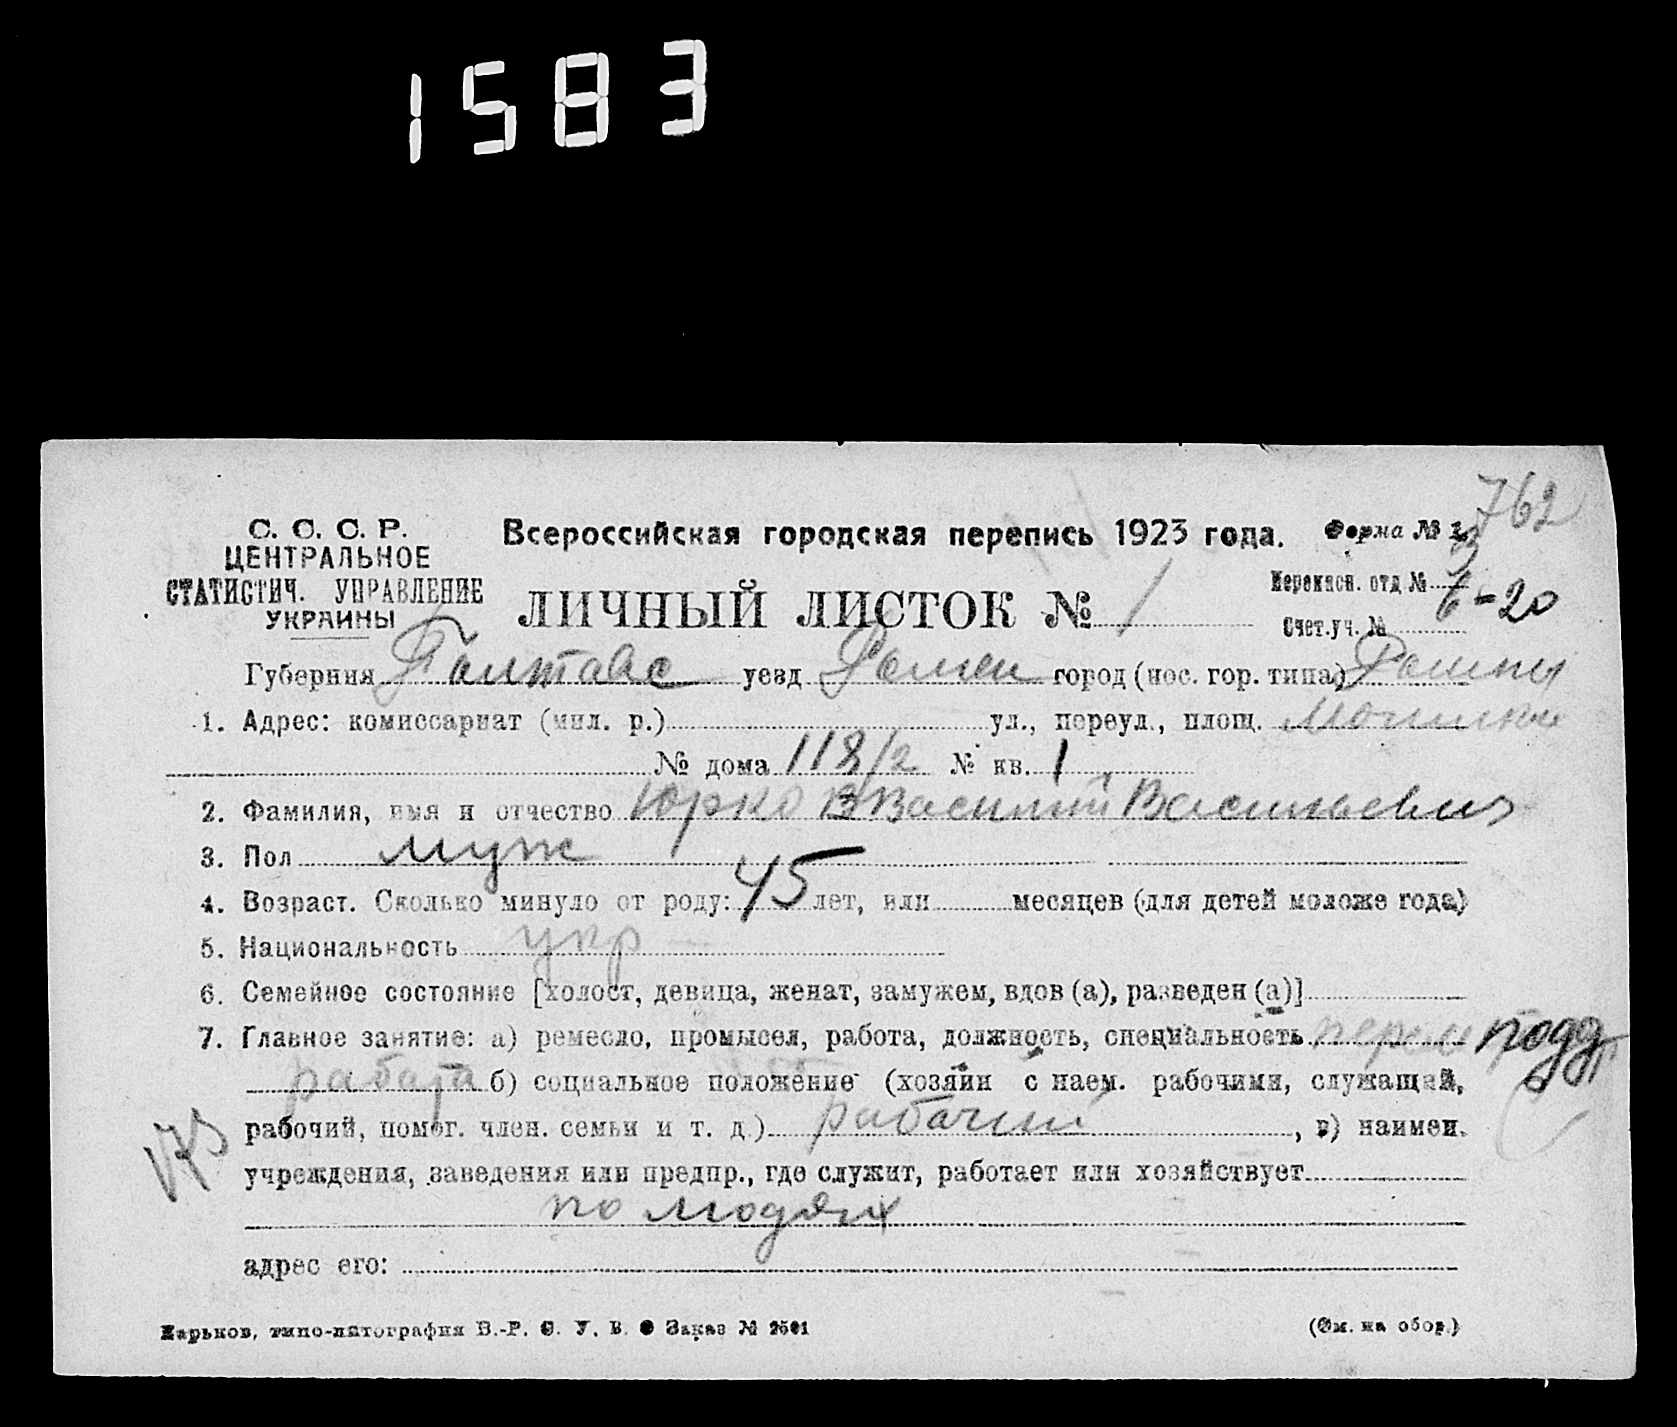 1583
762
С. С. С. Р.
ЦЕНТРАЛЬНОЕ
СТАТИСТИЧ. УПРАВЛЕНИЕ
УКРАИНЫ
Всероссийская городская перепись 1923 года.
Форма № 1.
ЛИЧНЫЙ ЛИСТОК № 1
Переписн. отд №
6-20
Счет.уч. №
Губерния Полтавс уезд Ромен город (пос. гор. типа) Ромны
1. Адрес: комиссариат (мил. р.) ул., переул., площ.
№ дома 118/2 № кв. 1
2. Фамилия, имя и отчество Юрко Василий Васильевич
3. Пол муж
4. Возраст. Сколько минуло от роду: 45 лет, или месяцев (для детей моложе года)
5. Национальность укр
6. Семейное состояние [холост, девица, женат, замужем, вдов (а), разведен (а)]
7. Главное занятие: а) ремесло, промысел, работа, должность, специальность подд
работа б) социальное положение (хозяин с наем. рабочими, служащий,
рабочий, помог. член. семьи и т. д.) рабочий, в) наимен.
учреждения, заведения или предпр., где служит, работает или хозяйствует
по людях
адрес его:
Харьков, типо-литография В.-Р. С. У. В. Заказ №
(См. на обор.)